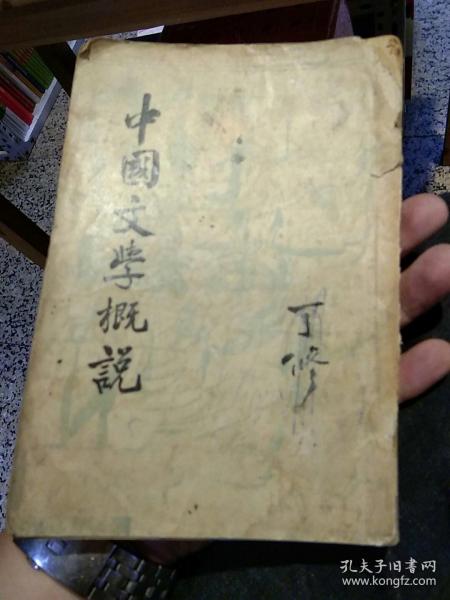 中國文学概説
丁修
孔夫子旧书网
www.kongfz.com